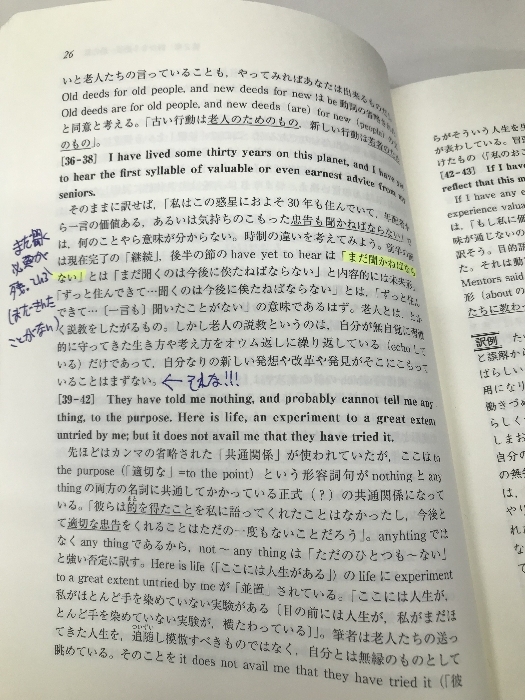 26
いと老人たちの言っていることも，やってみればあなたは出来るもの
Old deeds for old people, and new deeds for new は be 動詞の省略
Old deeds are for old people, and new deeds (are) for new (people)
と同意と考える。「古い行動は老人のためのもの，新しい行動は若者のため
のもの」。
[36-38] I have lived some thirty years on this planet, and I have yet
to hear the first syllable of valuable or even earnest advice from my
seniors.
そのまま訳せば，「私はこの惑星におよそ 30 年も住んでいて，年配者か
ら一言の価値ある，あるいは気持ちのこもった忠告も聞かねばならない」で
は，何のことやら意味が分からない。時制の違いを考えてみよう。
は現在完了の「継続」，後半の節の have yet to hear は「まだ聞かねばなら
ない」とは「まだ聞くのは今後に俟たねばならない」と内容的には未来形。
「ずっと住んできて…聞くのは今後に俟たねばならない」とは，「ずっと住ん
できて…［一言も］聞いたことがない」の意味であるはず。老人とは，とか
く説教をしたがるもの。しかし老人の説教というのは，自分が無自覚に習慣
的に守ってきた生き方や考え方をオウム返しに繰り返している (echo して
いる) だけであって，自分なりの新しい発想や改革や発見がそこにこもって
いることはまずない。 ← それな!!!
まだ聞く
必要が
残っている
(まだきいた
ことがない)
[39-42] They have told me nothing, and probably cannot tell me any
thing, to the purpose. Here is life, an experiment to a great extent
untried by me; but it does not avail me that they have tried it.
先ほどはカンマの省略された「共通関係」が使われていたが，ここは to
the purpose (「適切な」=to the point) という形容詞句が nothing と any
thing の両方の名詞に共通してかかっている正式 (？) の共通関係になって
いる。「彼らは的を得たことを私に語ってくれたことはなかったし，今後と
て適切な忠告をくれることはただの一度もないことだろう」。anyhting では
なく any thing であるから，not ~ any thing は「ただのひとつも～ない」
と強い否定に訳す。Here is life (「ここには人生がある」) の life に experiment
to a great extent untried by me が「並置」されている。「ここには人生が，
私がほとんど手を染めていない実験がある［目の前には人生が，私がまだほ
とんど手を染めていない実験が，横たわっている］」。筆者は老人たちの送っ
てきた人生を，追随し模倣すべきものではなく，自分とは無縁のものとして
眺めている。そのことを it does not avail me that they have tried it (「彼
らがそういう人生を
が表わしている。
けたもの (「私のお
[42-43] If I have
reflect that this m
If I have any
experience valua
は，「もし私に価
味が通じないの
訳そう。目的語
た。それは動
Mentors said
形 (about の
たちに教わ
訳例
と誤解か
ばらしい
用になり
働きづめ
らしく
しまお
自分の
の無
は，
や
け